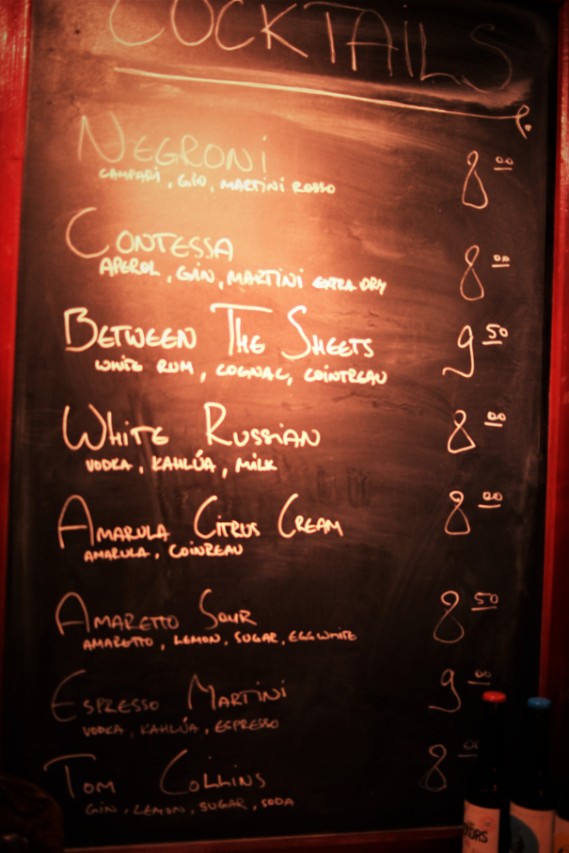 COCKTAILS
NEGRONI 8 00
CAMPARI, GIN, MARTINI ROSSO
CONTESSA 8 00
APEROL, GIN, MARTINI EXTRA DRY
BETWEEN THE SHEETS 9 50
WHITE RUM, COGNAC, COINTREAU
WHITE RUSSIAN 8 00
VODKA, KAHLÚA, MILK
AMARULA CITRUS CREAM 8 00
AMARULA, COINREAU
AMARETTO SOUR 8 50
AMARETTO, LEMON, SUGAR, EGGWHITE
ESPRESSO MARTINI 9 00
VODKA, KAHLÚA, ESPRESSO
TOM COLLINS 8 00
GIN, LEMON, SUGAR, SODA